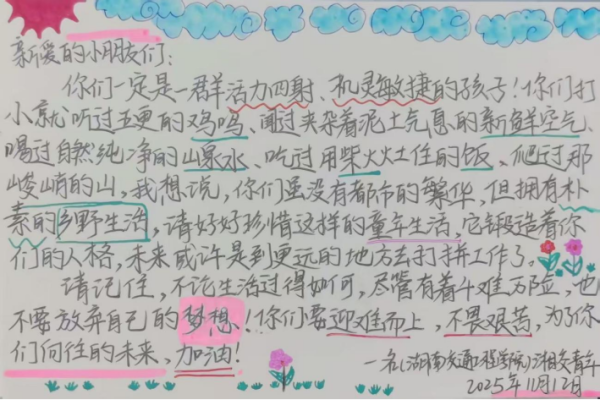 亲爱的小朋友们:
你们一定是一群活力四射、机灵敏捷的孩子!你们打
小就听过五更的鸡鸣、闻过夹杂着泥土气息的新鲜空气、
喝过自然纯净的山泉水、吃过用柴火灶住的饭、爬过那
峻峭的山,我想说,你们虽没有都市的繁华,但拥有朴
素的乡野生活,请好好珍惜这样的童年生活,它锻造着你
们的人格,未来或许是到更远的地方去打拼工作了。
请记住,不论生活过得如何,尽管有着千难万险,也
不要放弃自己的梦想!你们要迎难而上,不畏艰苦,为了你
们向往的未来,加油!
一名(湖南交通工程学院)湘交青年
2025年11月12日